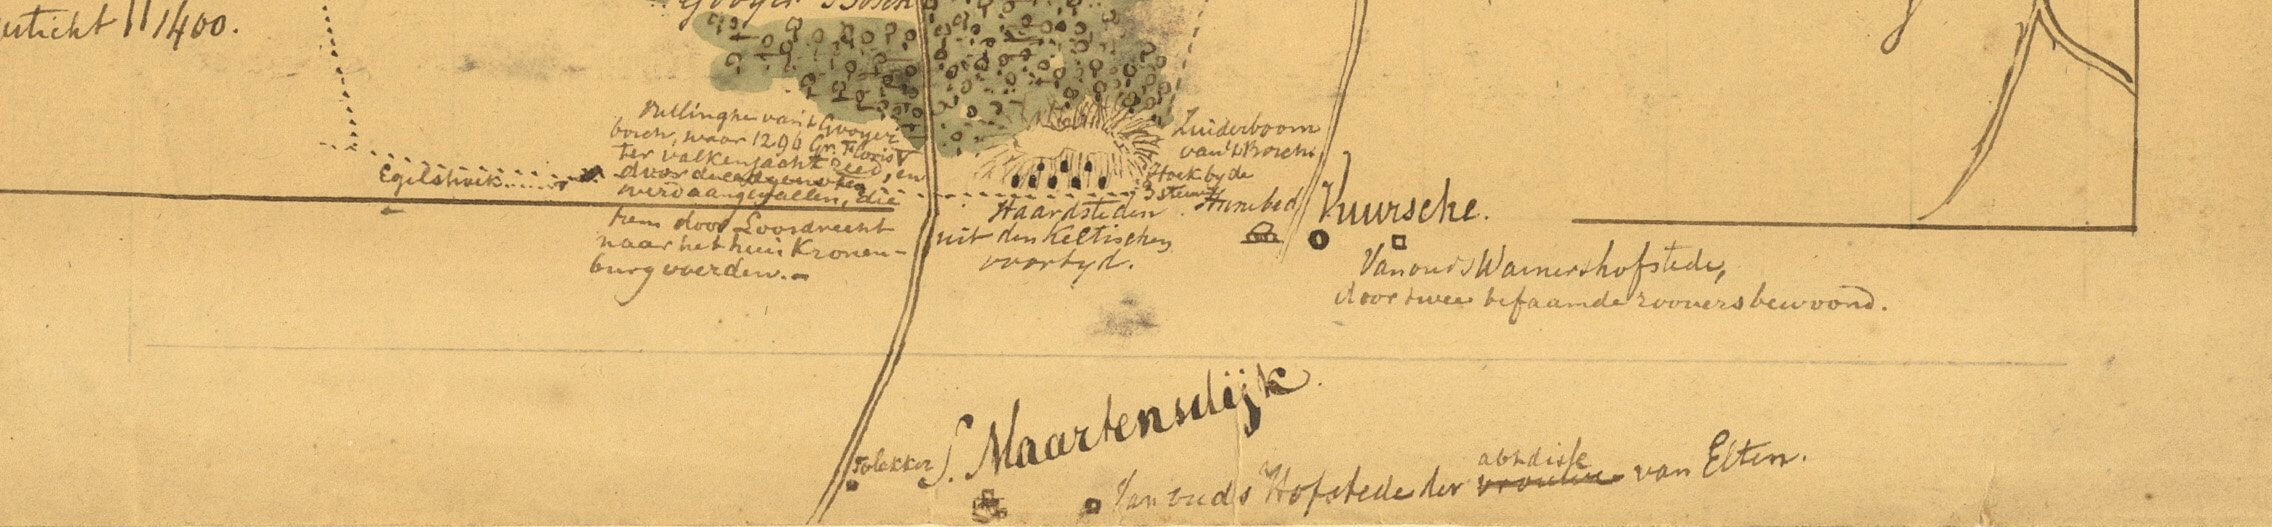 Gooyer Bosch
sticht 1400.
Nullinghe van 't Gooyer
bosch, waar 1296 Gr. Floris V
ter valkenjacht reed, en
door de edelen
werd aangevallen, die
hem door Loosdrecht
naar het huis Kronen-
burg voerden.-
Egelshoek
Zuiderboom
van 't Bosch.
Hoek by de
3 steenen
Hunebed
Haardsteden
uit den Keltischen
voortyd.
Vuursche.
Van ouds Warners hofstede,
door twee befaamde roovers bewoond.
Tolakker
S. Maartensdijk.
abtdisse
Van ouds Hofstede der vrouwe van Elten.